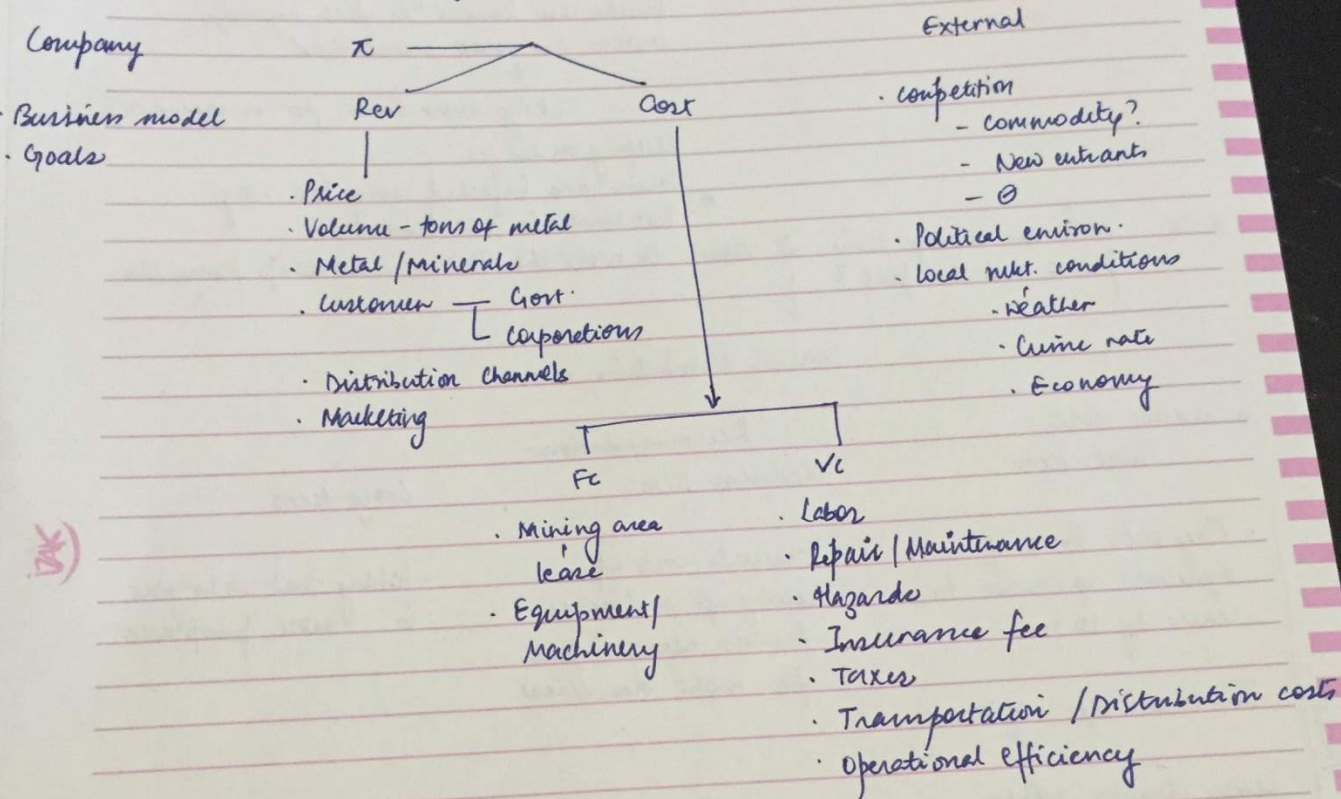 Company
· Business model
· Goals
π
Rev
Cost
· Price
· Volume - tons of metal
· Metal / Minerals
· Customer - Govt.
Corporations
· Distribution channels
· Marketing
FC
· Mining area
lease
· Equipment/
Machinery
VC
· Labor
· Repair / Maintenance
· Hazards
· Insurance fee
· Taxes
· Transportation / Distribution costs
· Operational efficiency
External
· Competition
- commodity?
- New entrants
- Θ
· Political environ.
· Local mkt. conditions
· Weather
· Crime rate
· Economy